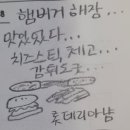 햄버거 해장...
맛있었다...
치즈스틱, 최고...
감튀도굿...
롯데리아냠